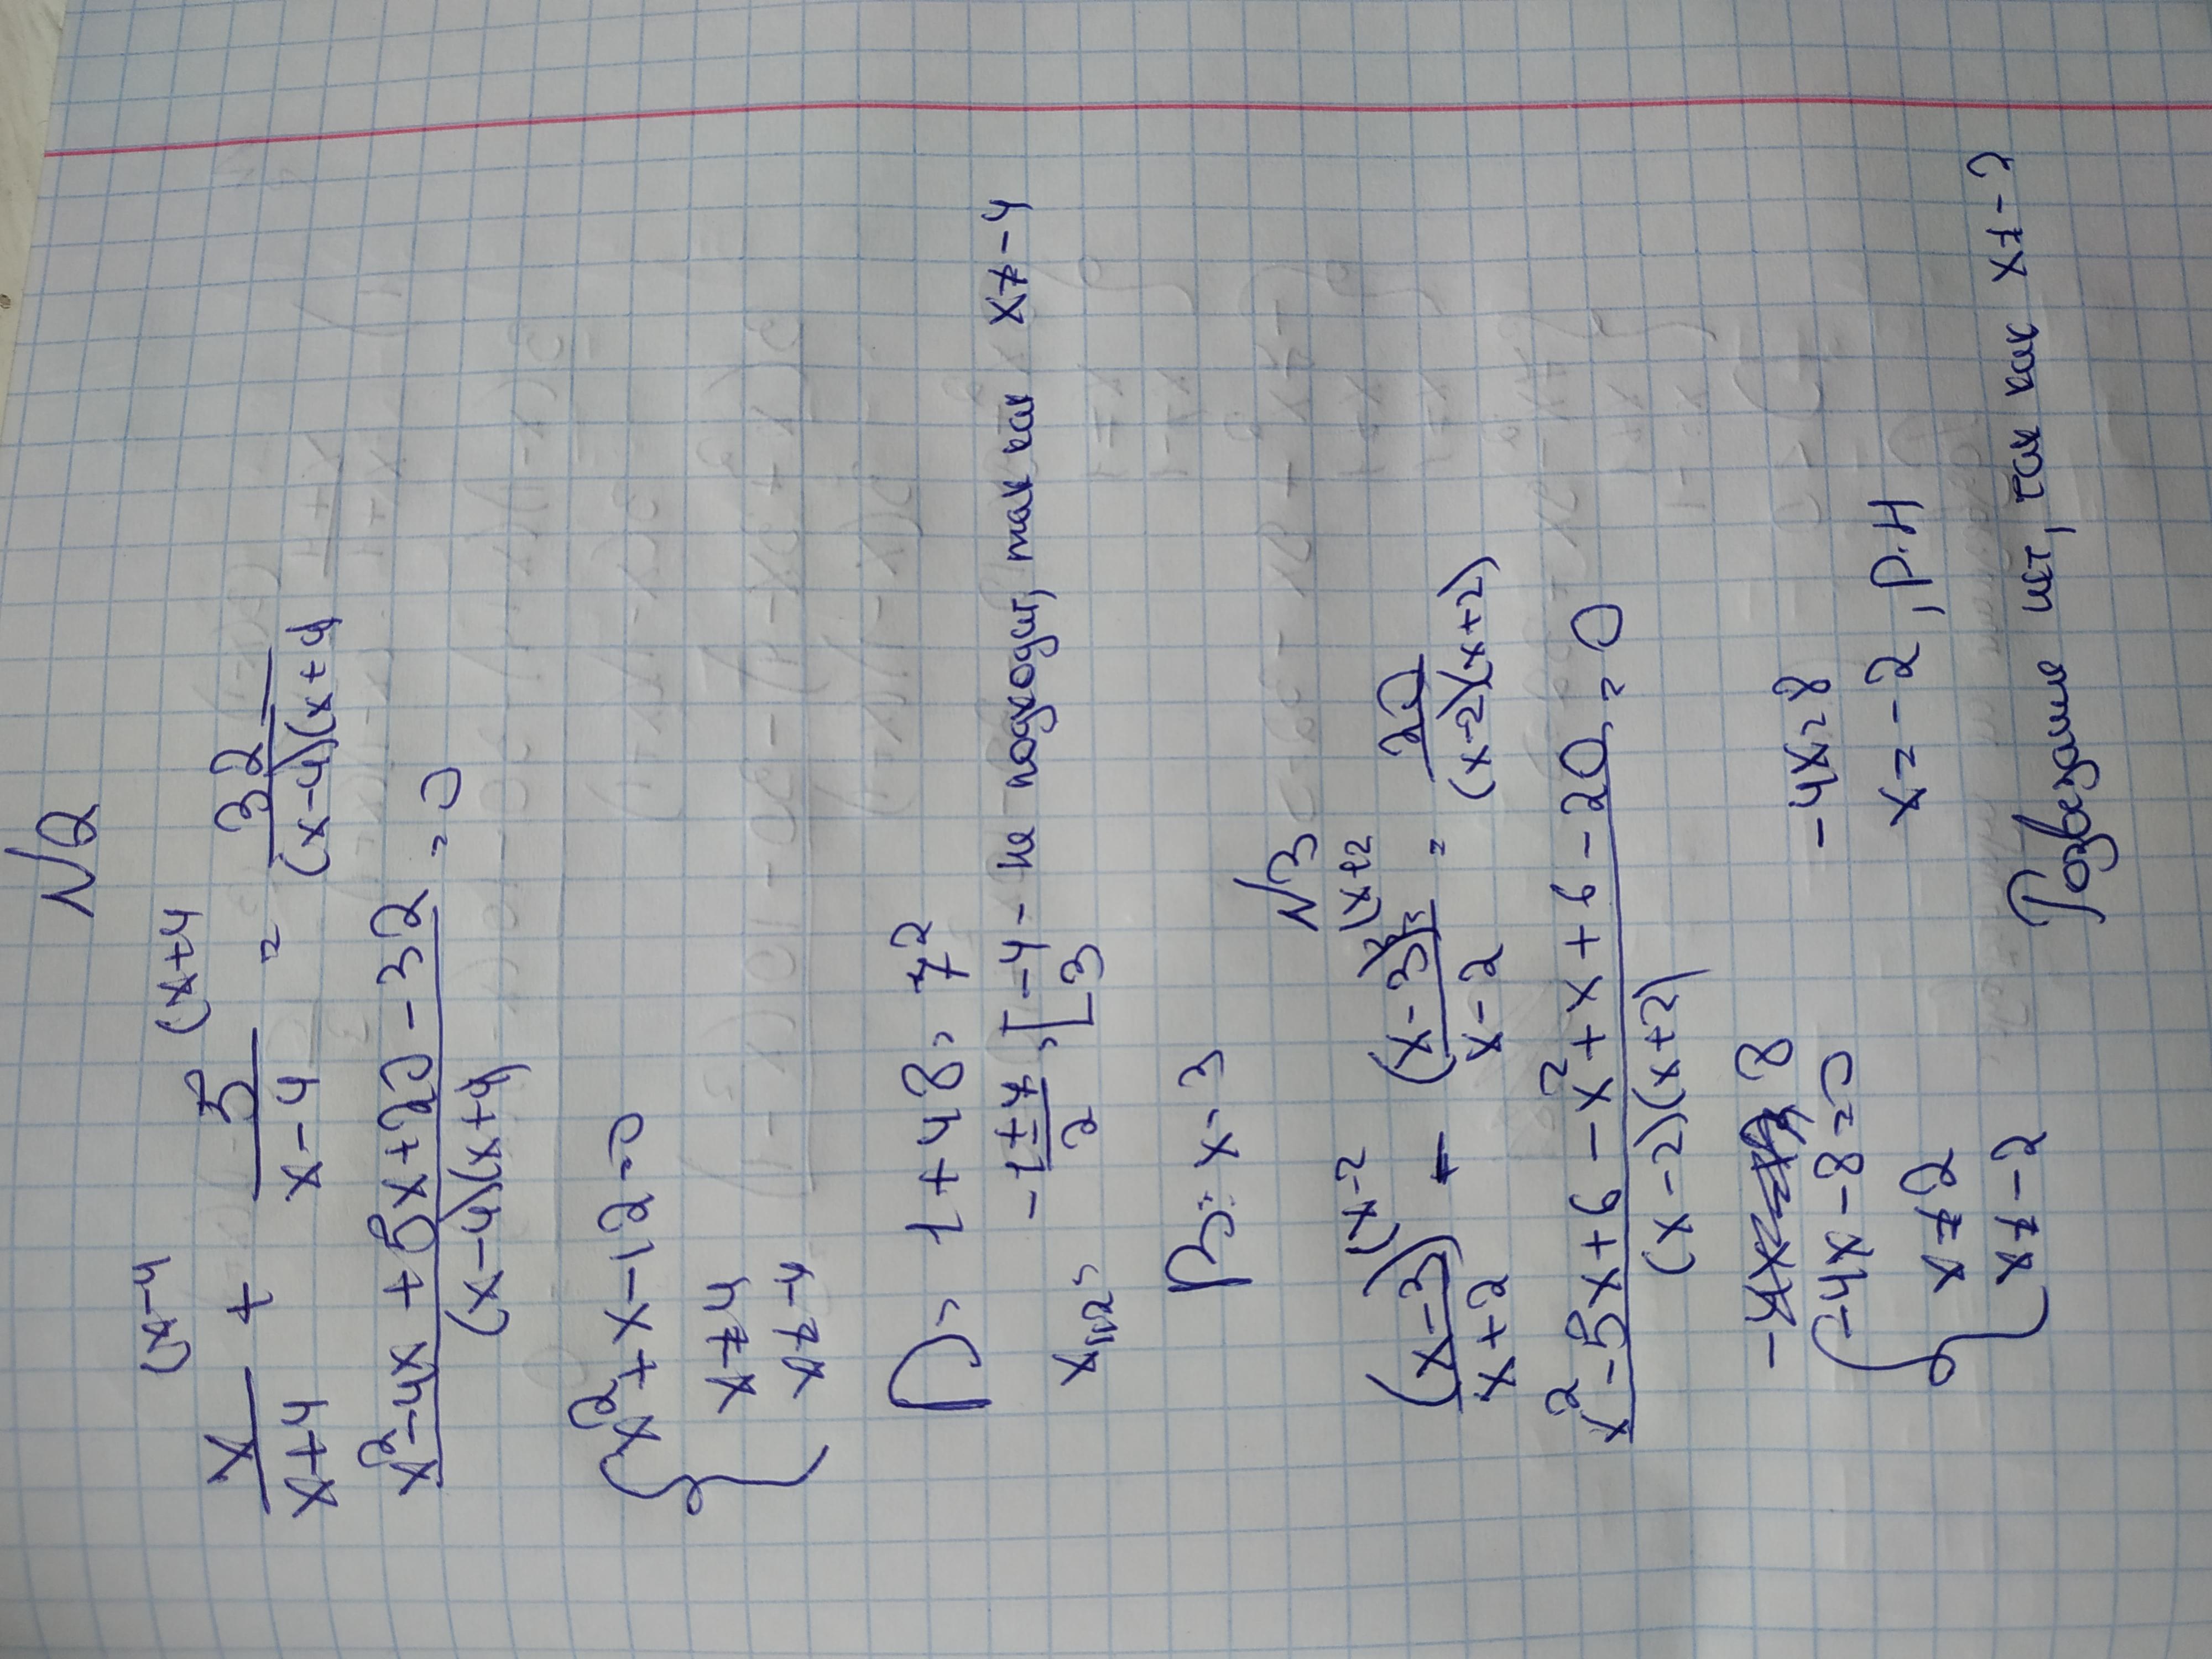 N2
(x-4 (x+4
x/(x+4) + 5/(x-4) = 32/((x-4)(x+4)
(x²-4x+5x+20-32)/((x-4)(x+4)) = 0
{x²+x-12=0
x≠4
x≠-4
D = 1+48 = 7²
x₁,₂ = (-1±7)/2 = [-4 - не подходит, так как x≠-4
3
В: x=3
N3
(x-2 (x+2
(x-3)/(x+2) - (x-3)/(x-2) = 20/((x-2)(x+2))
(x²-5x+6-x²+x+6-20)/((x-2)(x+2)) = 0
8
{-4x-8=0 -4x=8
x≠2 x=-2, Р.Н
x≠-2
нет, так как x≠-2